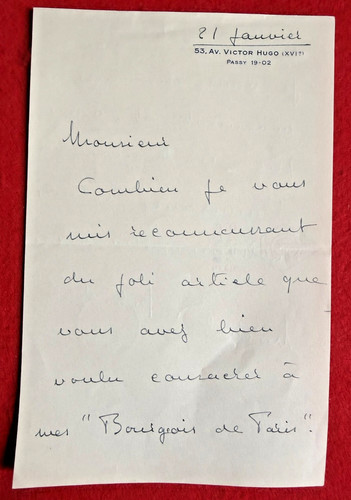 21 Janvier
53, AV. VICTOR HUGO (XVIᵉ)
PASSY 19-02
Monsieur
Combien je vous
suis reconnaissant
du joli article que
vous avez bien
voulu consacrer à
mes "Bourgeois de Paris".